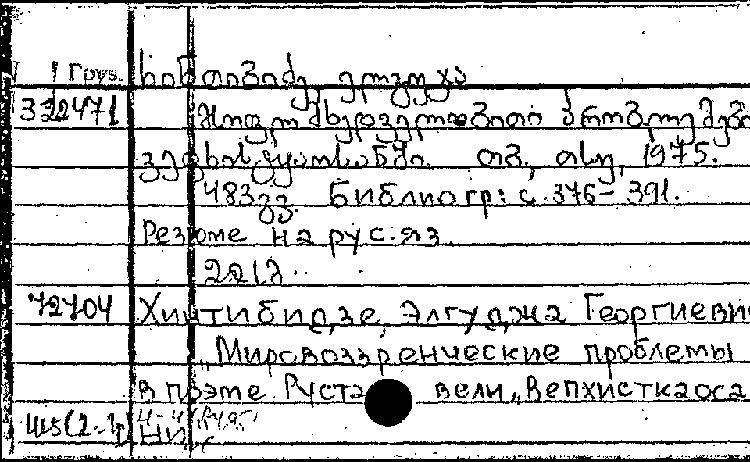 Груз. ხინთიბიძე, ელგუჯა
322471 მსოფლმხედველობითი პრობლემები
ვეფხისტყაოსანში. თბ., თსუ, 1975.
483 გვ. Библиогр: с. 376-391.
Резюме на рус. яз.
72704 Хинтибидзе, Элгуджа Георгиеви
„Мировоззренческие проблемы
в поэме Руставели „Вепхисткаоса